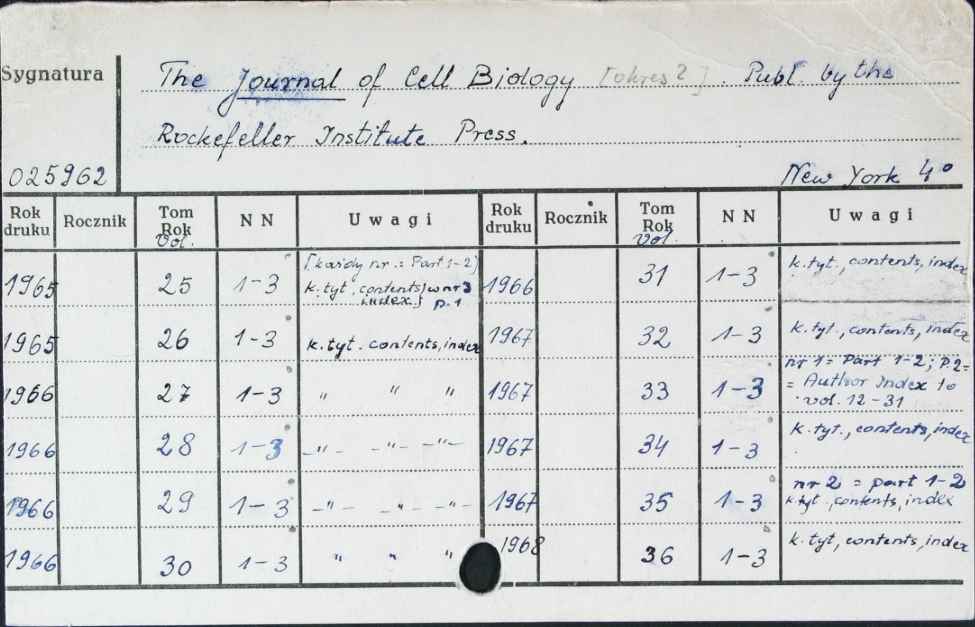 Sygnatura
The Journal of Cell Biology [okres 2]. Publ. by the
Rockefeller Institute Press.
025962
New York 4°
Rok druku Rocznik Tom Rok Vol. N N Uwagi Rok druku Rocznik Tom Rok Vol. N N Uwagi
1965 25 1-3 [każdy nr.: Part 1-2] k.tyt. contents, w nr 3 index. p. 1 1966 31 1-3 k.tyt., contents, index
1965 26 1-3 k.tyt. contents, index 1967 32 1-3 k.tyt., contents, index
1966 27 1-3 " " " 1967 33 1-3 nr 1 = Part 1-2; P.2= = Author Index to vol. 12-31
1966 28 1-3 -"- -"- -"- 1967 34 1-3 k.tyt., contents, index
1966 29 1-3 -"- -"- -"- 1967 35 1-3 nr 2 = part 1-2 k.tyt., contents, index
1966 30 1-3 " " " 1968 36 1-3 k.tyt, contents, index